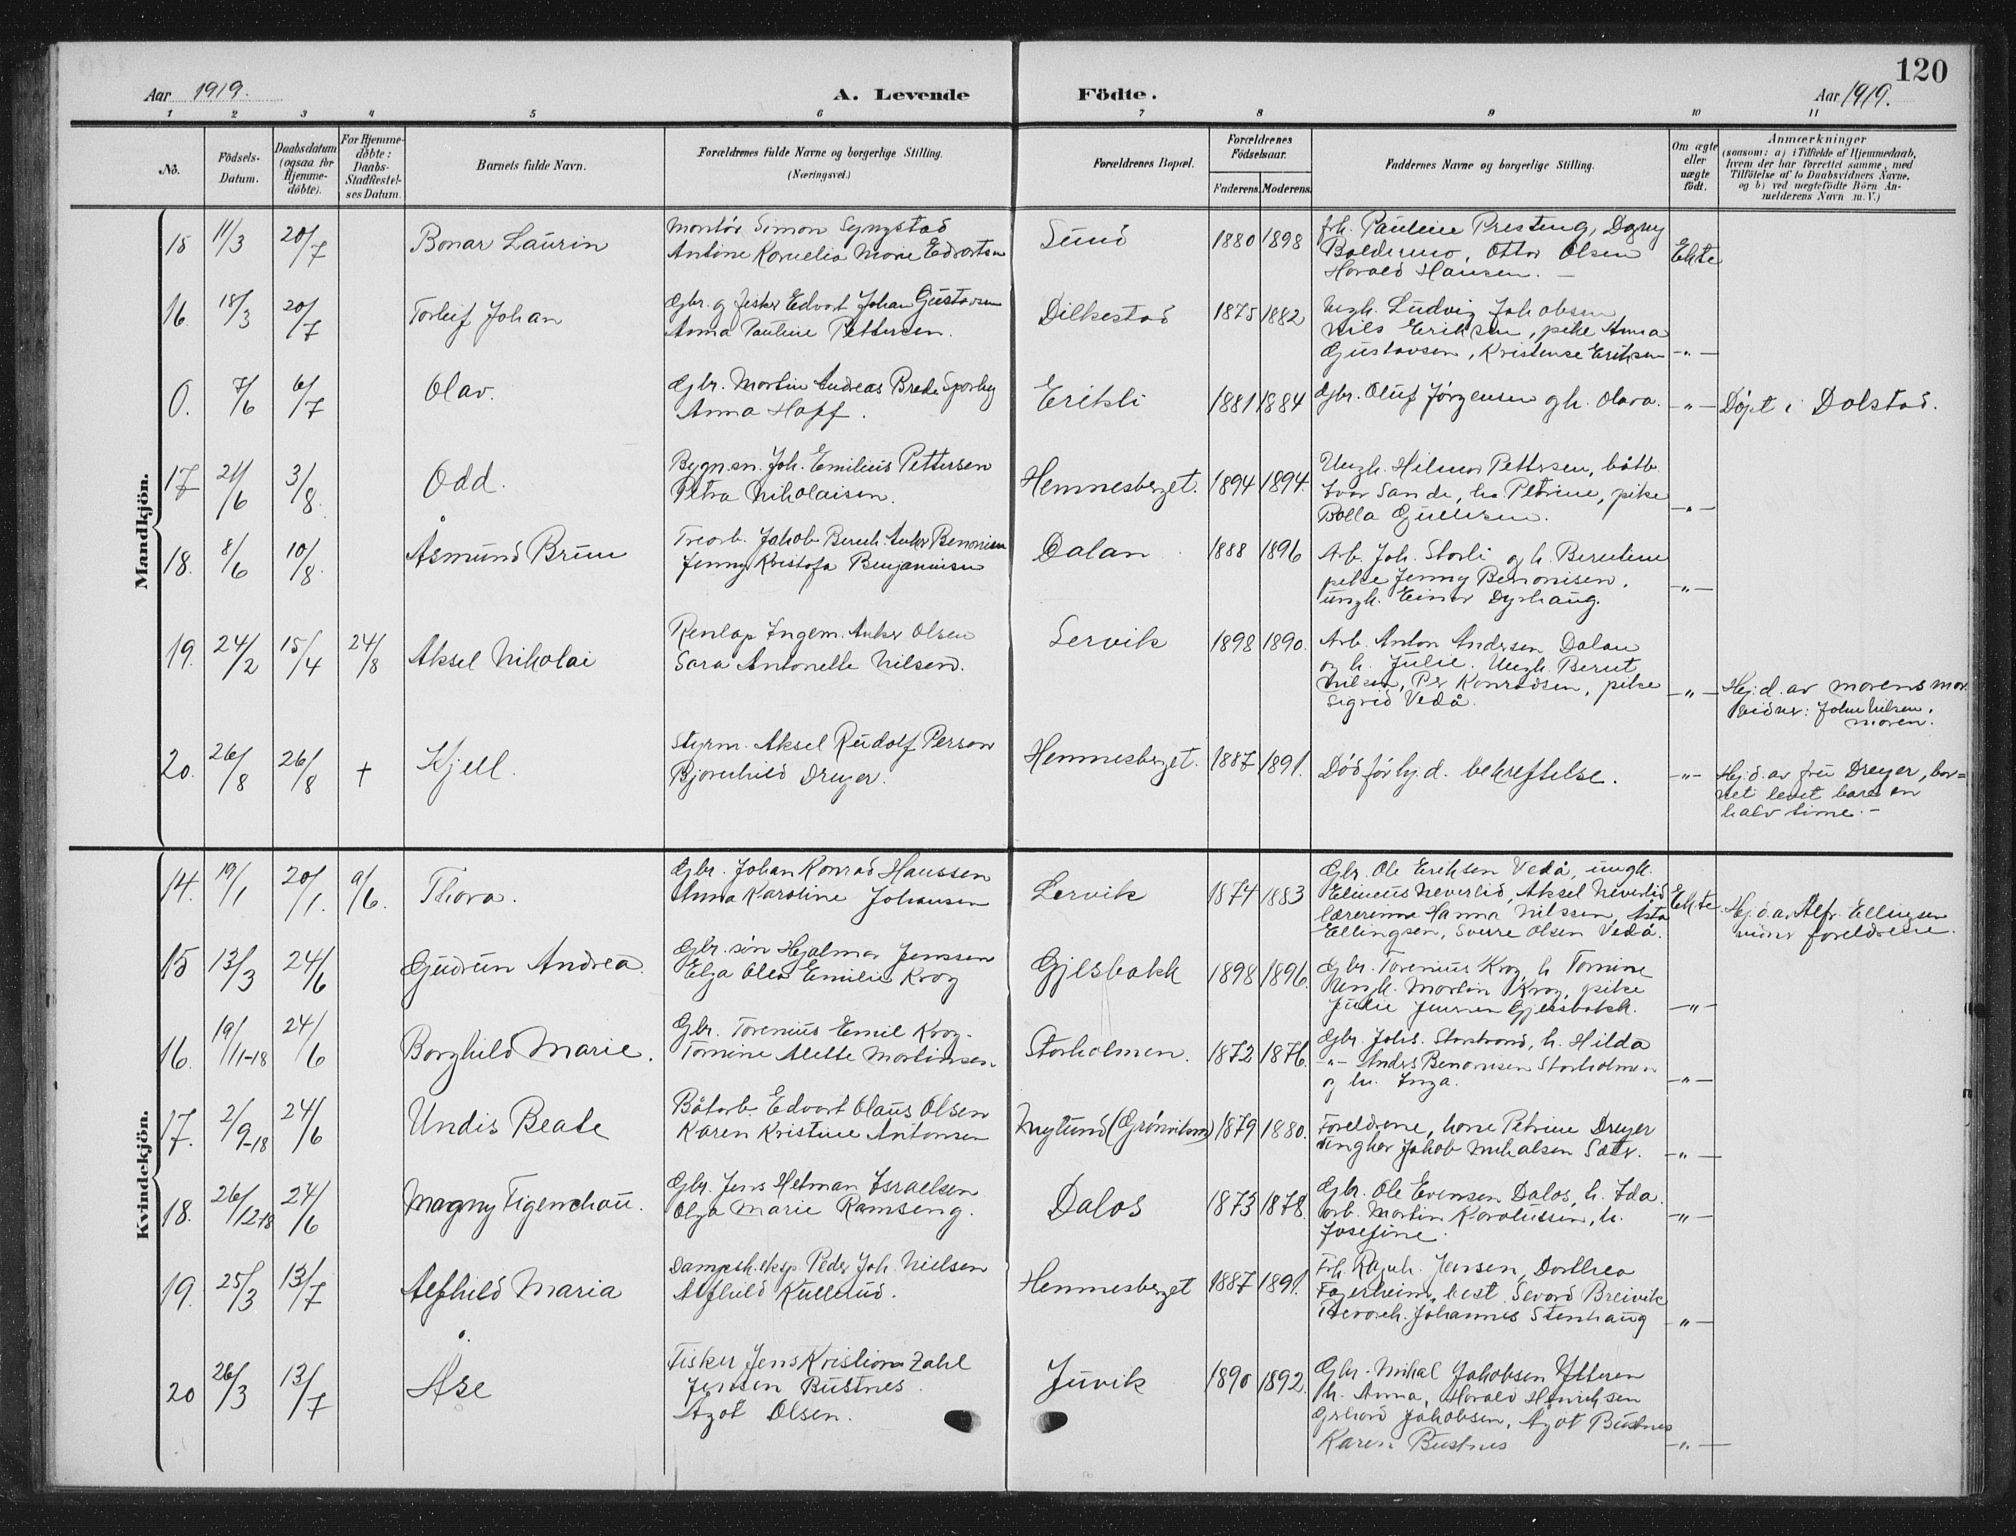 120
Aar 1919.
A. Levende Födte.
Aar 1919.
1 2 3 4 5 6 7 8 9 10 11
No.
Födsels-Datum.
Daabsdatum (ogsaa for Hjemme-döbte).
For Hjemme-döbte: Daabs-Stadfæstel-ses Datum.
Barnets fulde Navn.
Forældrenes fulde Navne og borgerlige Stilling.
(Næringsvei.)
Forældrenes Bopæl.
Forældrenes Födselsaar.
Faderens. Moderens.
Faddernes Navne og borgerlige Stilling.
Om ægte eller uægte födt.
Anmærkninger
(saasom: a) i Tilfælde af Hjemmedaab,
hvem der har forrettet samme, med
Tilföielse af to Daabsvidners Navne,
og b) ved uægtefödte Börn An-
melderens Navn m. V.)
Mandkjön.
15 11/3 20/7 Bonar Laurin
Montör Simon
Antine Kornelia Marie
Sund 1880 1898
frk. Pauline Presteng, Dagny
Baldermo, Ottar Olsen
Harald Hansen. —
Ekte
16. 18/3 20/7 Torleif Johan
Gbr. og fisker Edvart Johan Gustavsen
Anna Pauline Pettersen.
Dilkestad 1875 1882
Ungk. Ludvig Jakobsen
Nils Eriksen, pike Anna
Gustavsen, Kristense Eriksen
—"—
0. 7/6 6/7 Olav.
Gbr. Martin Andreas Brede Sporby
Anna Hoff.
Erikli 1881 1884
Gbr. Oluf Jørgensen og h. Olava.
—"— Døpt i Dolstad.
17 21/6 3/8 Odd.
Bygn.sn. Joh. Emilius Pettersen
Petra Nikolaisen.
Hemnesberget. 1894 1894.
Ungk. Hilmar Pettersen, båtb.
Ivar Sande, h. Petrine, pike
Bolla
—"—
18. 8/6 10/8 Åsmund Brun
Jakob Anker Benonisen
Jenny Kristofa Benjaminsen
Dalan 1888 1896
Arb. Joh. Storli og h. Berntine
pike Jenny Benonisen,
ungk. Einar Dyrhaug.
—"—
19. 24/2 15/4 24/8 Aksel Nikolai
Renlap Ingem. Anker Olsen
Sara Antonette Nilsen.
Lervik 1898 1890.
Arb. Anton Andersen Dalan
og h. Julie. Ungk. Bernt
Nilsen, Per Konradsen, pike
Sigrid Vedå.
—"— Hj.d. av morens mor
vidner: John Nilsen,
moren.
20. 26/8 26/8 + Kjell.
Styrm. Aksel Rudolf Person
Bjørnhild Dreyer.
Hemnesberget. 1887 1891.
Död för hj.d. bekreftelse.
—"— Hj.d. av fru Dreyer, bar=
net levet bare en
halv time. —
Kvindekjön.
14. 19/1 20/1. 9/6. Thora.
Gbr. Johan Konrad Hanssen
Anna Karoline Johansen
Lervik 1874 1883
Gbr. Ole Eriksen Vedå, ungk.
Elineus Neverlid, Aksel Neverlid
lærerinne Hanna Nilssen, Asta
Ellingsen, Sverre Olsen Vedå.
Ekte Hj.d. av Alfr. Ellingsen
vidner foreldrene.
15 13/3 24/6 Gudrun Andrea.
Gbr. sön Hjalmar Jenssen
Elza Olea Emilie Krog
Gjesbakk 1898 1896.
Gbr. Torenius Krog, h. Tomine
Ungk. Martin Krog, pike
Julie
—"—
16. 19/11-18 24/6 Borghild Marie.
Gbr. Torenius Emil Krog.
Tomine Alette Mortinsen.
Storholmen. 1872 1876.
Gbr. Johs. Storstrand, h. Hilda
—"— Anders Benonisen Storholmen
og h. Inga.
—"—
17. 2/9-18 24/6 Undis Beate
Båtarb. Edvart Olaus Olsen
Karen Kristine Antonsen
Nylund (Grønvikvn) 1879 1880.
Foreldrene, kone Petrine Dreyer
ungkar Jakob Mikalsen Sætr.
—"—
18. 26/12-18 24/6 Magny Figenschau.
Gbr. Jens Hetman Israelsen
Olga Marie Ramseng.
Dalos 1873 1878.
Gbr. Ole Evensen Dalos, h. Ida.
arb. Martin Karolussen, h.
Josefine.
—"—
19. 25/3 13/7 Alfhild Maria
Dampsk.eksp. Peder Joh. Nielsen
Alfhild Kulstad.
Hemnesberget 1887 1891.
Frk. Ragnh. Jensen, Dorthea
Fagerheim, best. Sevard Breivik
Johannes Stenhaug
—"—
20 26/3 13/7 Åse
Fisker Jens Kristian Zahl
Jensen Bustnes.
Agot Olsen.
Juvik 1890 1892.
Gbr. Mikal Jakobsen Ytteren
h. Anna, Harald Henriksen
Gerhard Jakobsen, Agot Bustnes
Karen Bustnes
—"—